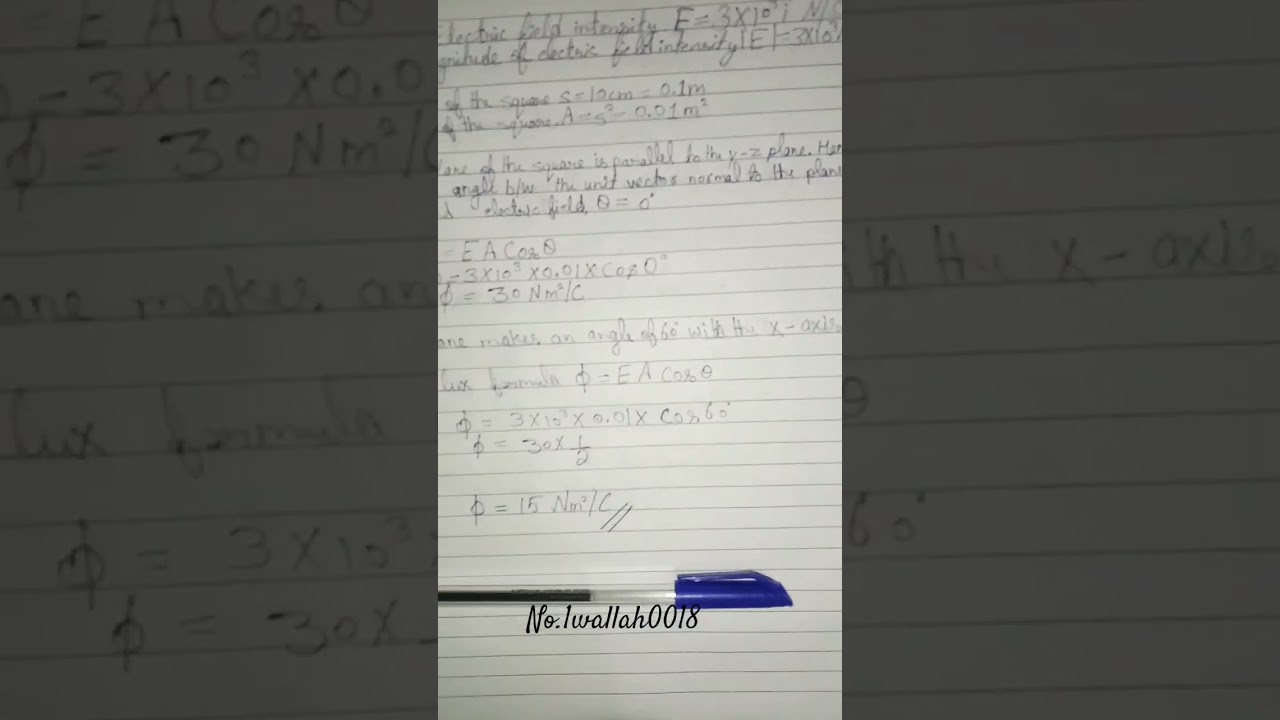 Electric field intensity E = 3X10³ î N/C
gnitude of electric field intensity |E| = 3X10³
of the square s = 10cm = 0.1m
of the square A = s² - 0.01m²
ane of the square is parallel to the y-z plane. Hen
angle b/w the unit vector normal to the plan
electric field, θ = 0°
= E A Cos θ
- 3X10³ X 0.01 X Cos 0°
ϕ = 30 Nm²/C
ane makes an angle of 60° with the x-axis.
lux formula ϕ = E A Cos θ
ϕ = 3X10³ X 0.01 X Cos 60°
ϕ = 30 X 1/2
ϕ = 15 Nm²/C //
No.1wallah0018